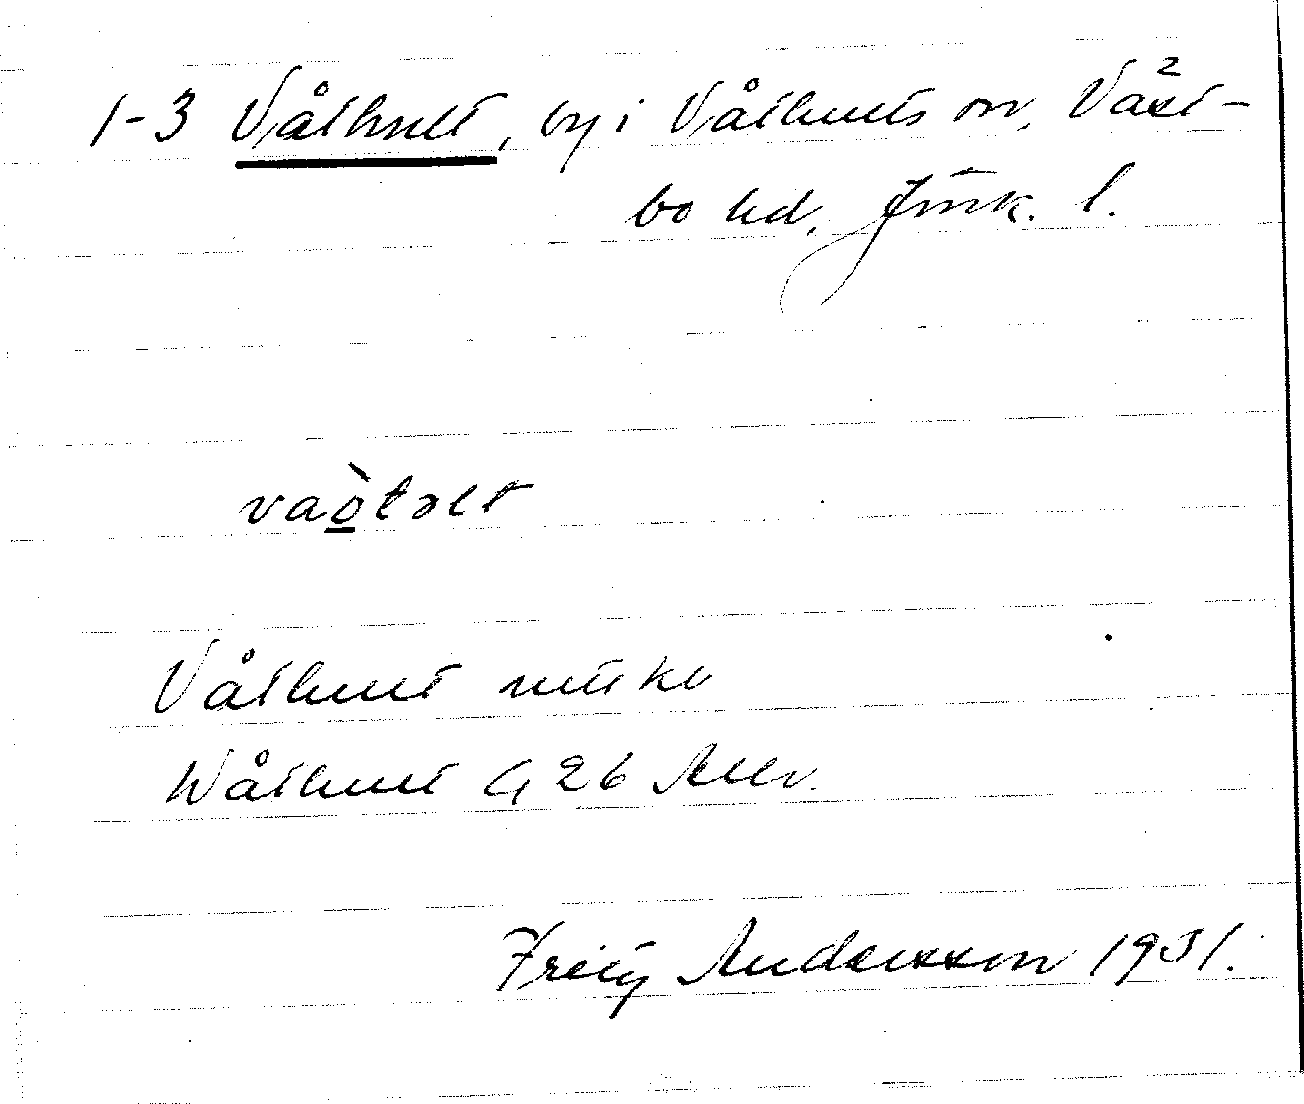 1-3 Våthult, by i Våthults sn, Väst-
bo hd, Jönk. l.
vaòtəlt
Våthult mtlkr
Wåthult G 26 Allv.
Fritz Andersson 1931.